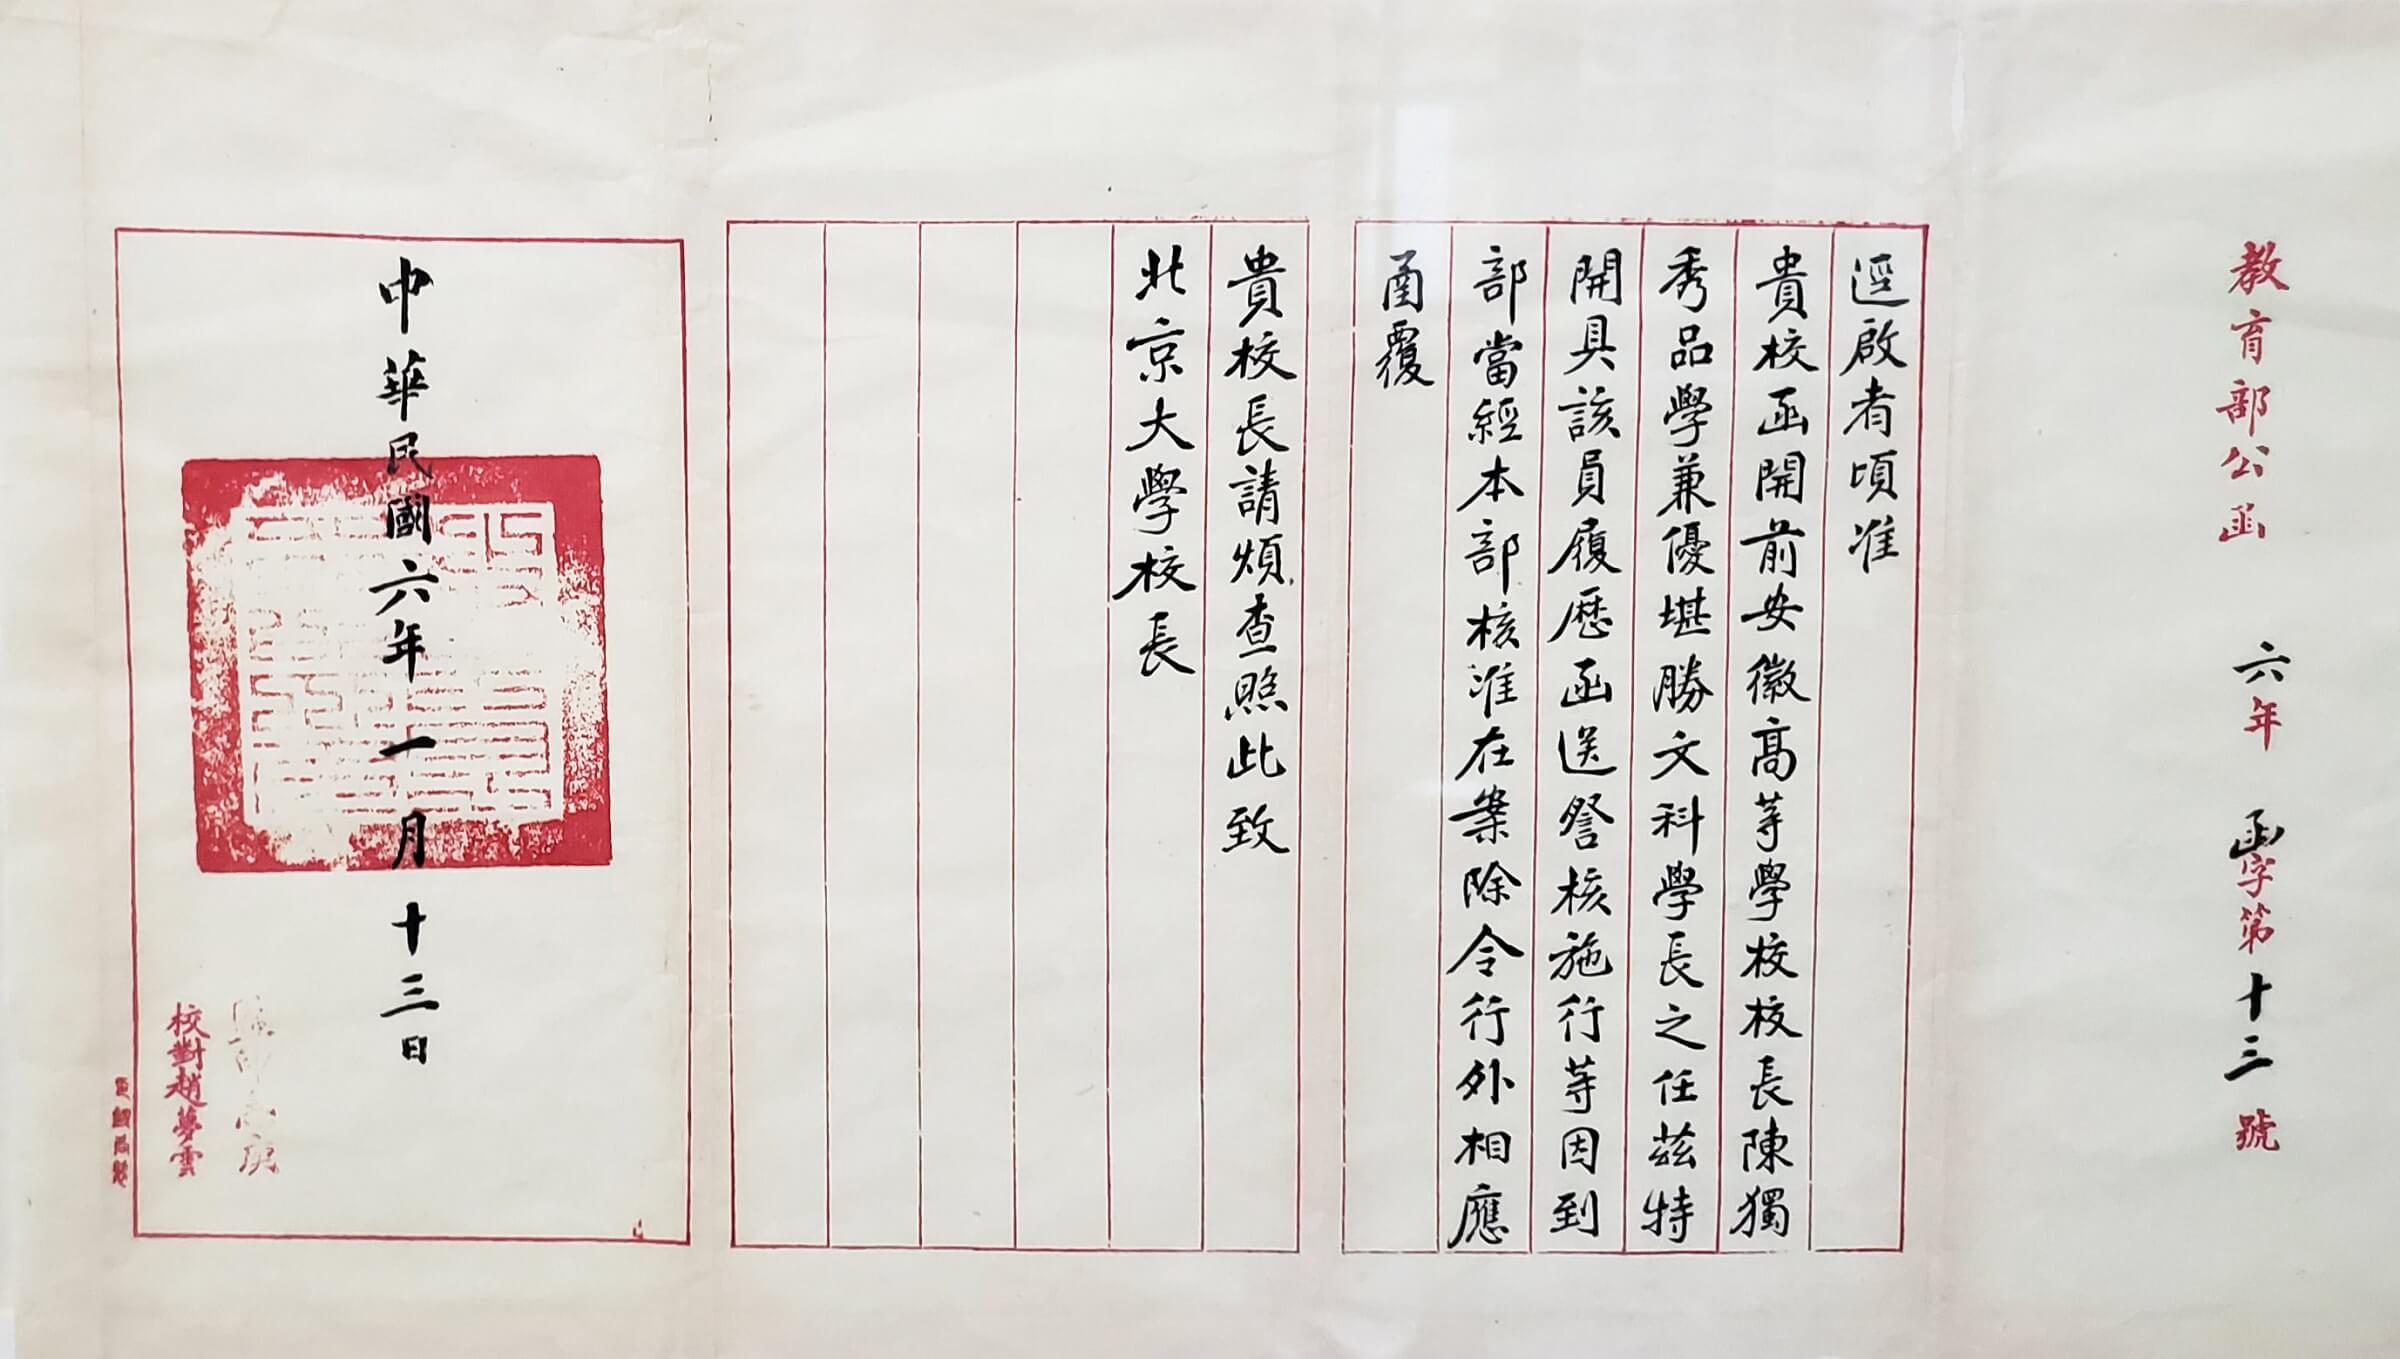 教育部公函 六年 函字第十三號
逕啟者頃准
貴校函開前安徽高等學校校長陳獨
秀品學兼優堪勝文科學長之任茲特
開具該員履歷函送詧核施行等因到
部當經本部核准在案除令行外相應
函覆
貴校長請煩查照此致
北京大學校長
中華民國六年一月十三日
校對趙夢雲